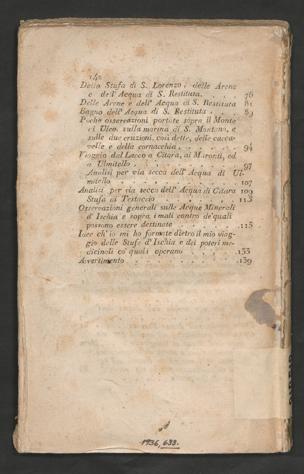 140
Della Stufa di S. Lorenzo, delle Arene
e dell' Acqua di S. Restituta. . . . 76
Delle Arene e dell' Acqua di S. Restituta 81
Bagno dell' Acqua di S. Restituta . . 89
Poche osservazioni portate sopra il Monte
di Vico, sulla marina di S. Montano, e
sulle due eruzioni, così dette, delle cacca-
velle e della cornacchia . . . . . 94
Viaggio dal Lacco a Citara, ai Maronti, ed
a Ulmitello . . . . . . . . 97
Analisi per via secca dell' Acqua di Ul-
mitello . . . . . . . . . 107
Analisi per via secca dell' Acqua di Citara 109
Stufa di Testaccio . . . . . . 113
Osservazioni generali sulle Acque Minerali
d' Ischia e sopra i mali contro de' quali
possono essere destinate . . . . 115
Idee ch' io mi ho formate dietro il mio viag-
gio delle Stufe d' Ischia e dei poteri me-
dicinali co' quali operano . . . . 133
Avvertimento . . . . . . . . 139
1936,633.